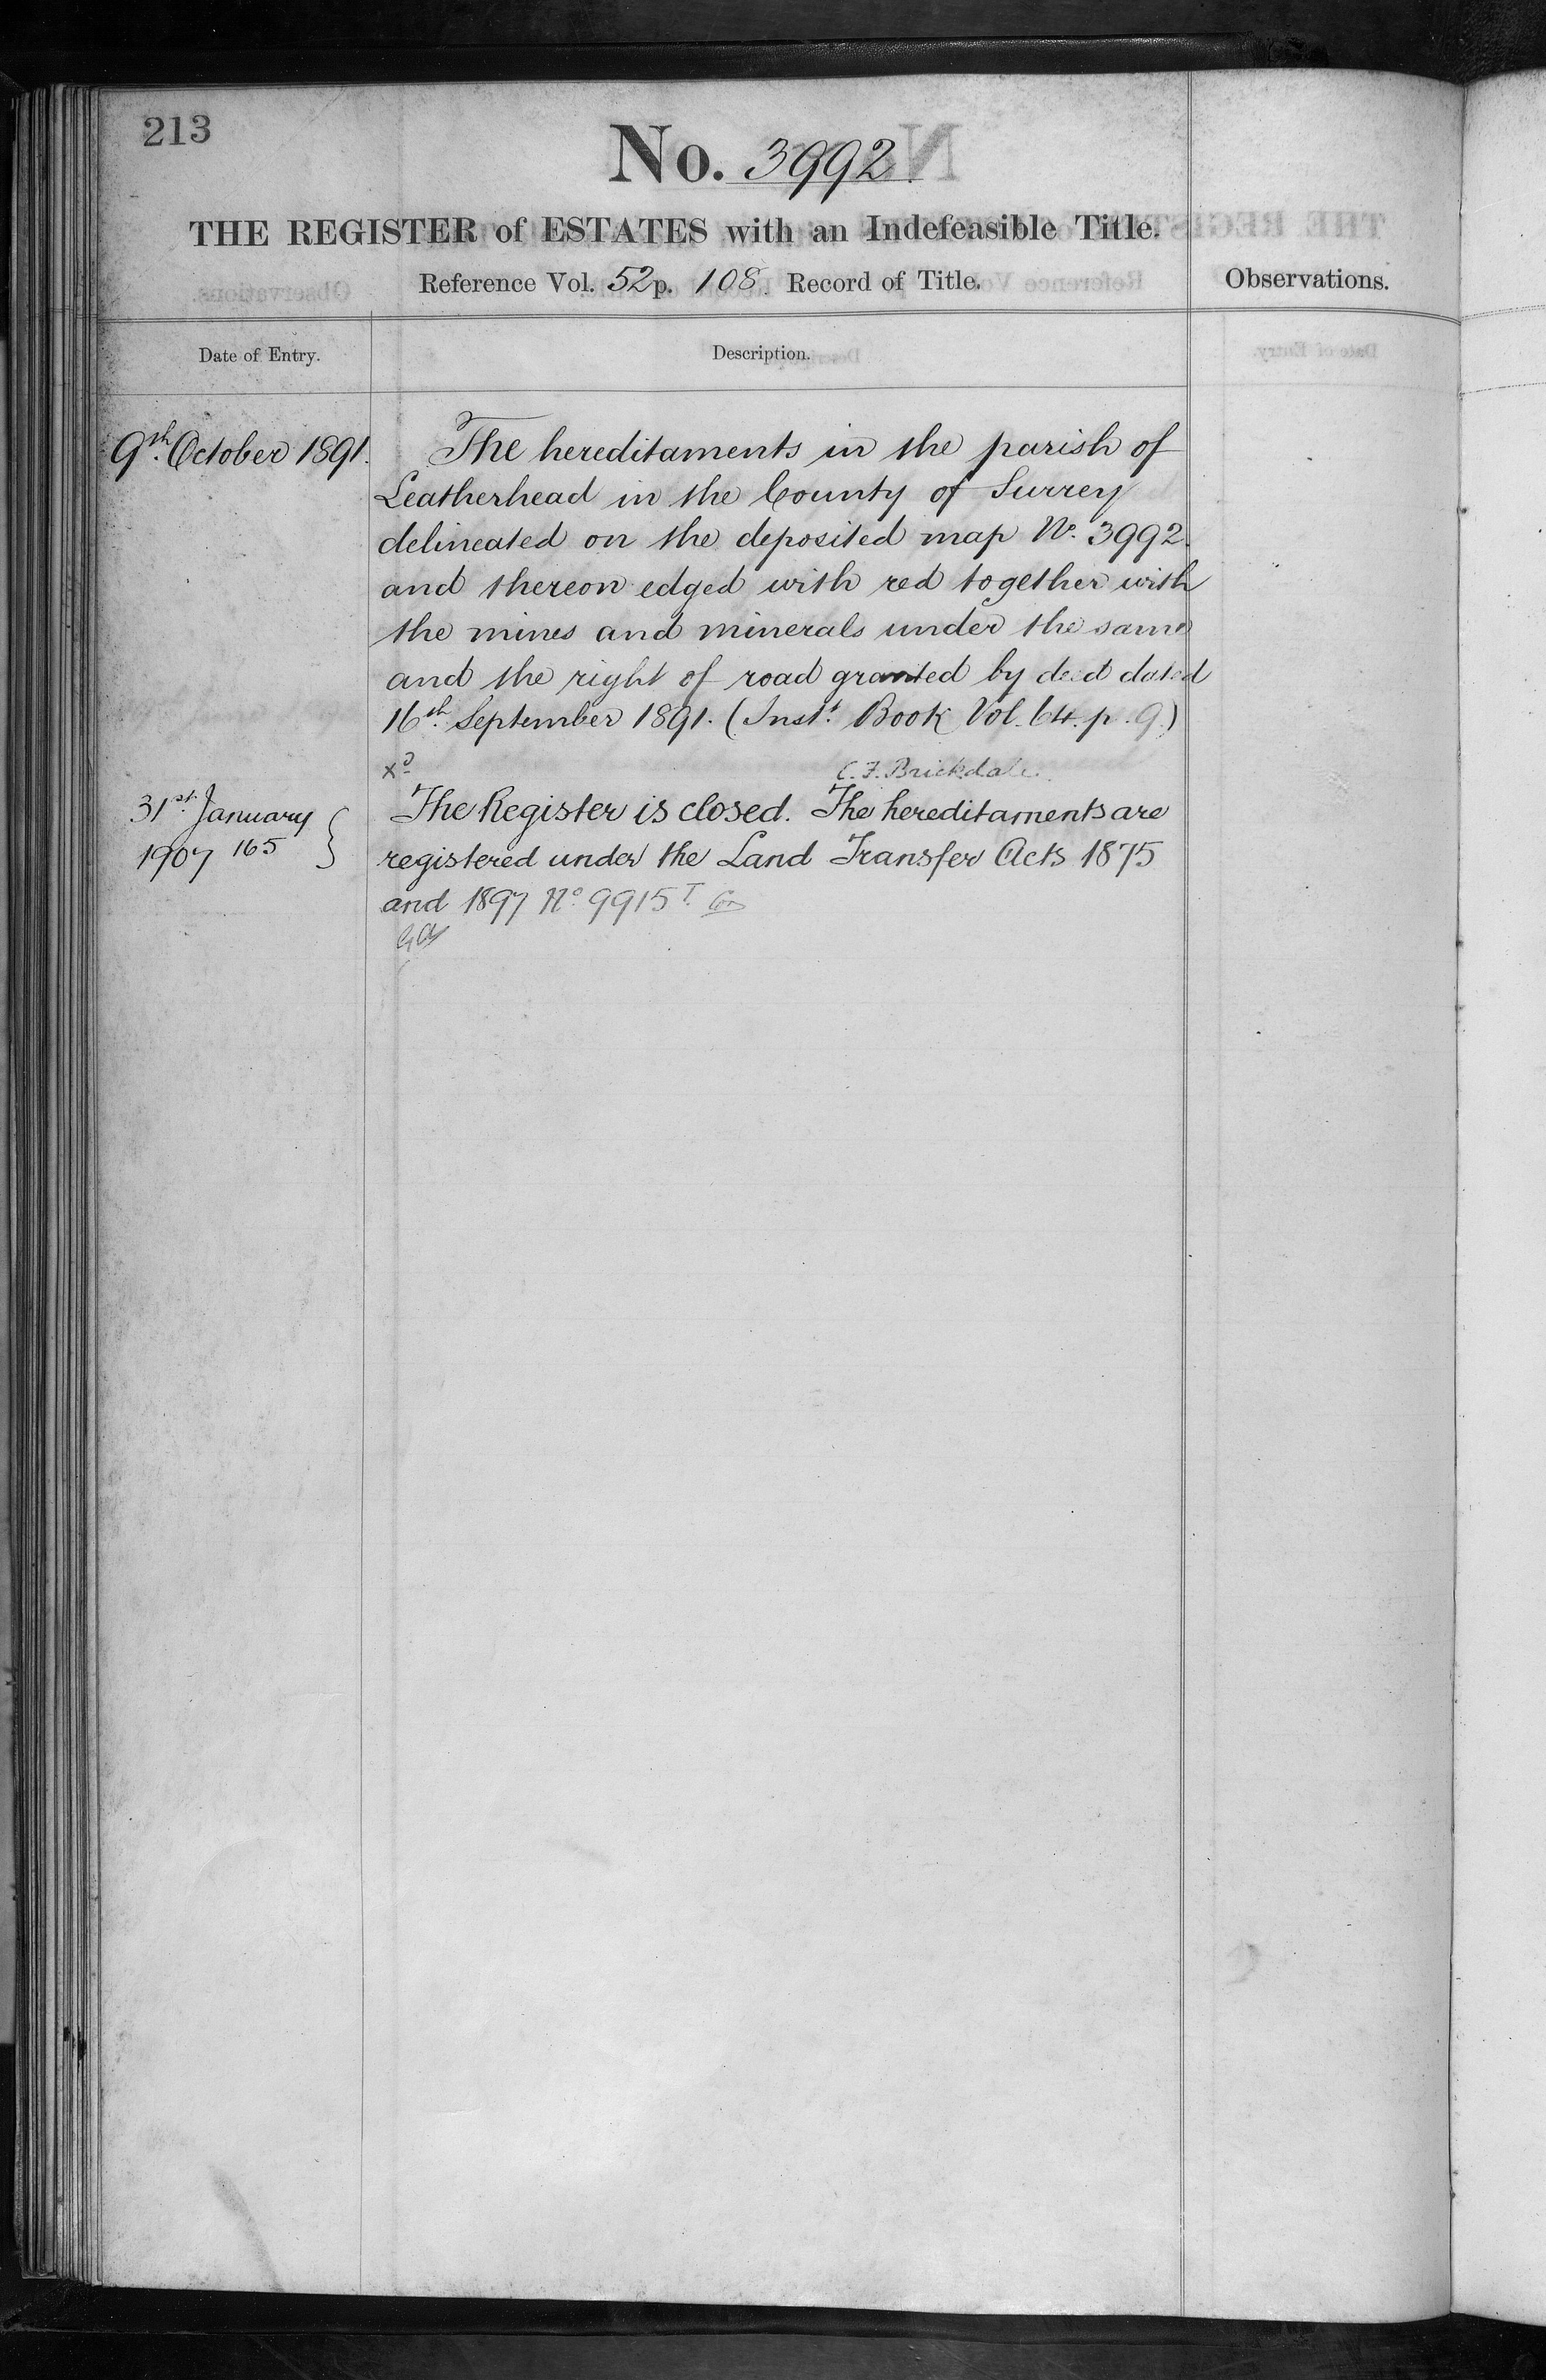 213
No. 3992.
THE REGISTER of ESTATES with an Indefeasible Title.
Reference Vol. 52 p. 108. Record of Title.
Observations.
Date of Entry.
Description.
9th. October 1891.
The hereditaments in the parish of
Leatherhead in the County of Surrey
delineated on the deposited map No. 3992.
and thereon edged with red together with
the mines and minerals under the same
and the right of road granted by deed dated
16th. September 1891. (Inst. Book Vol. 64. p. 9.)
xd
C. F. Brickdale.
31st. January
1907 165
The Register is closed. The hereditaments are
registered under the Land Transfer Acts 1875
and 1897 No 9915 T.